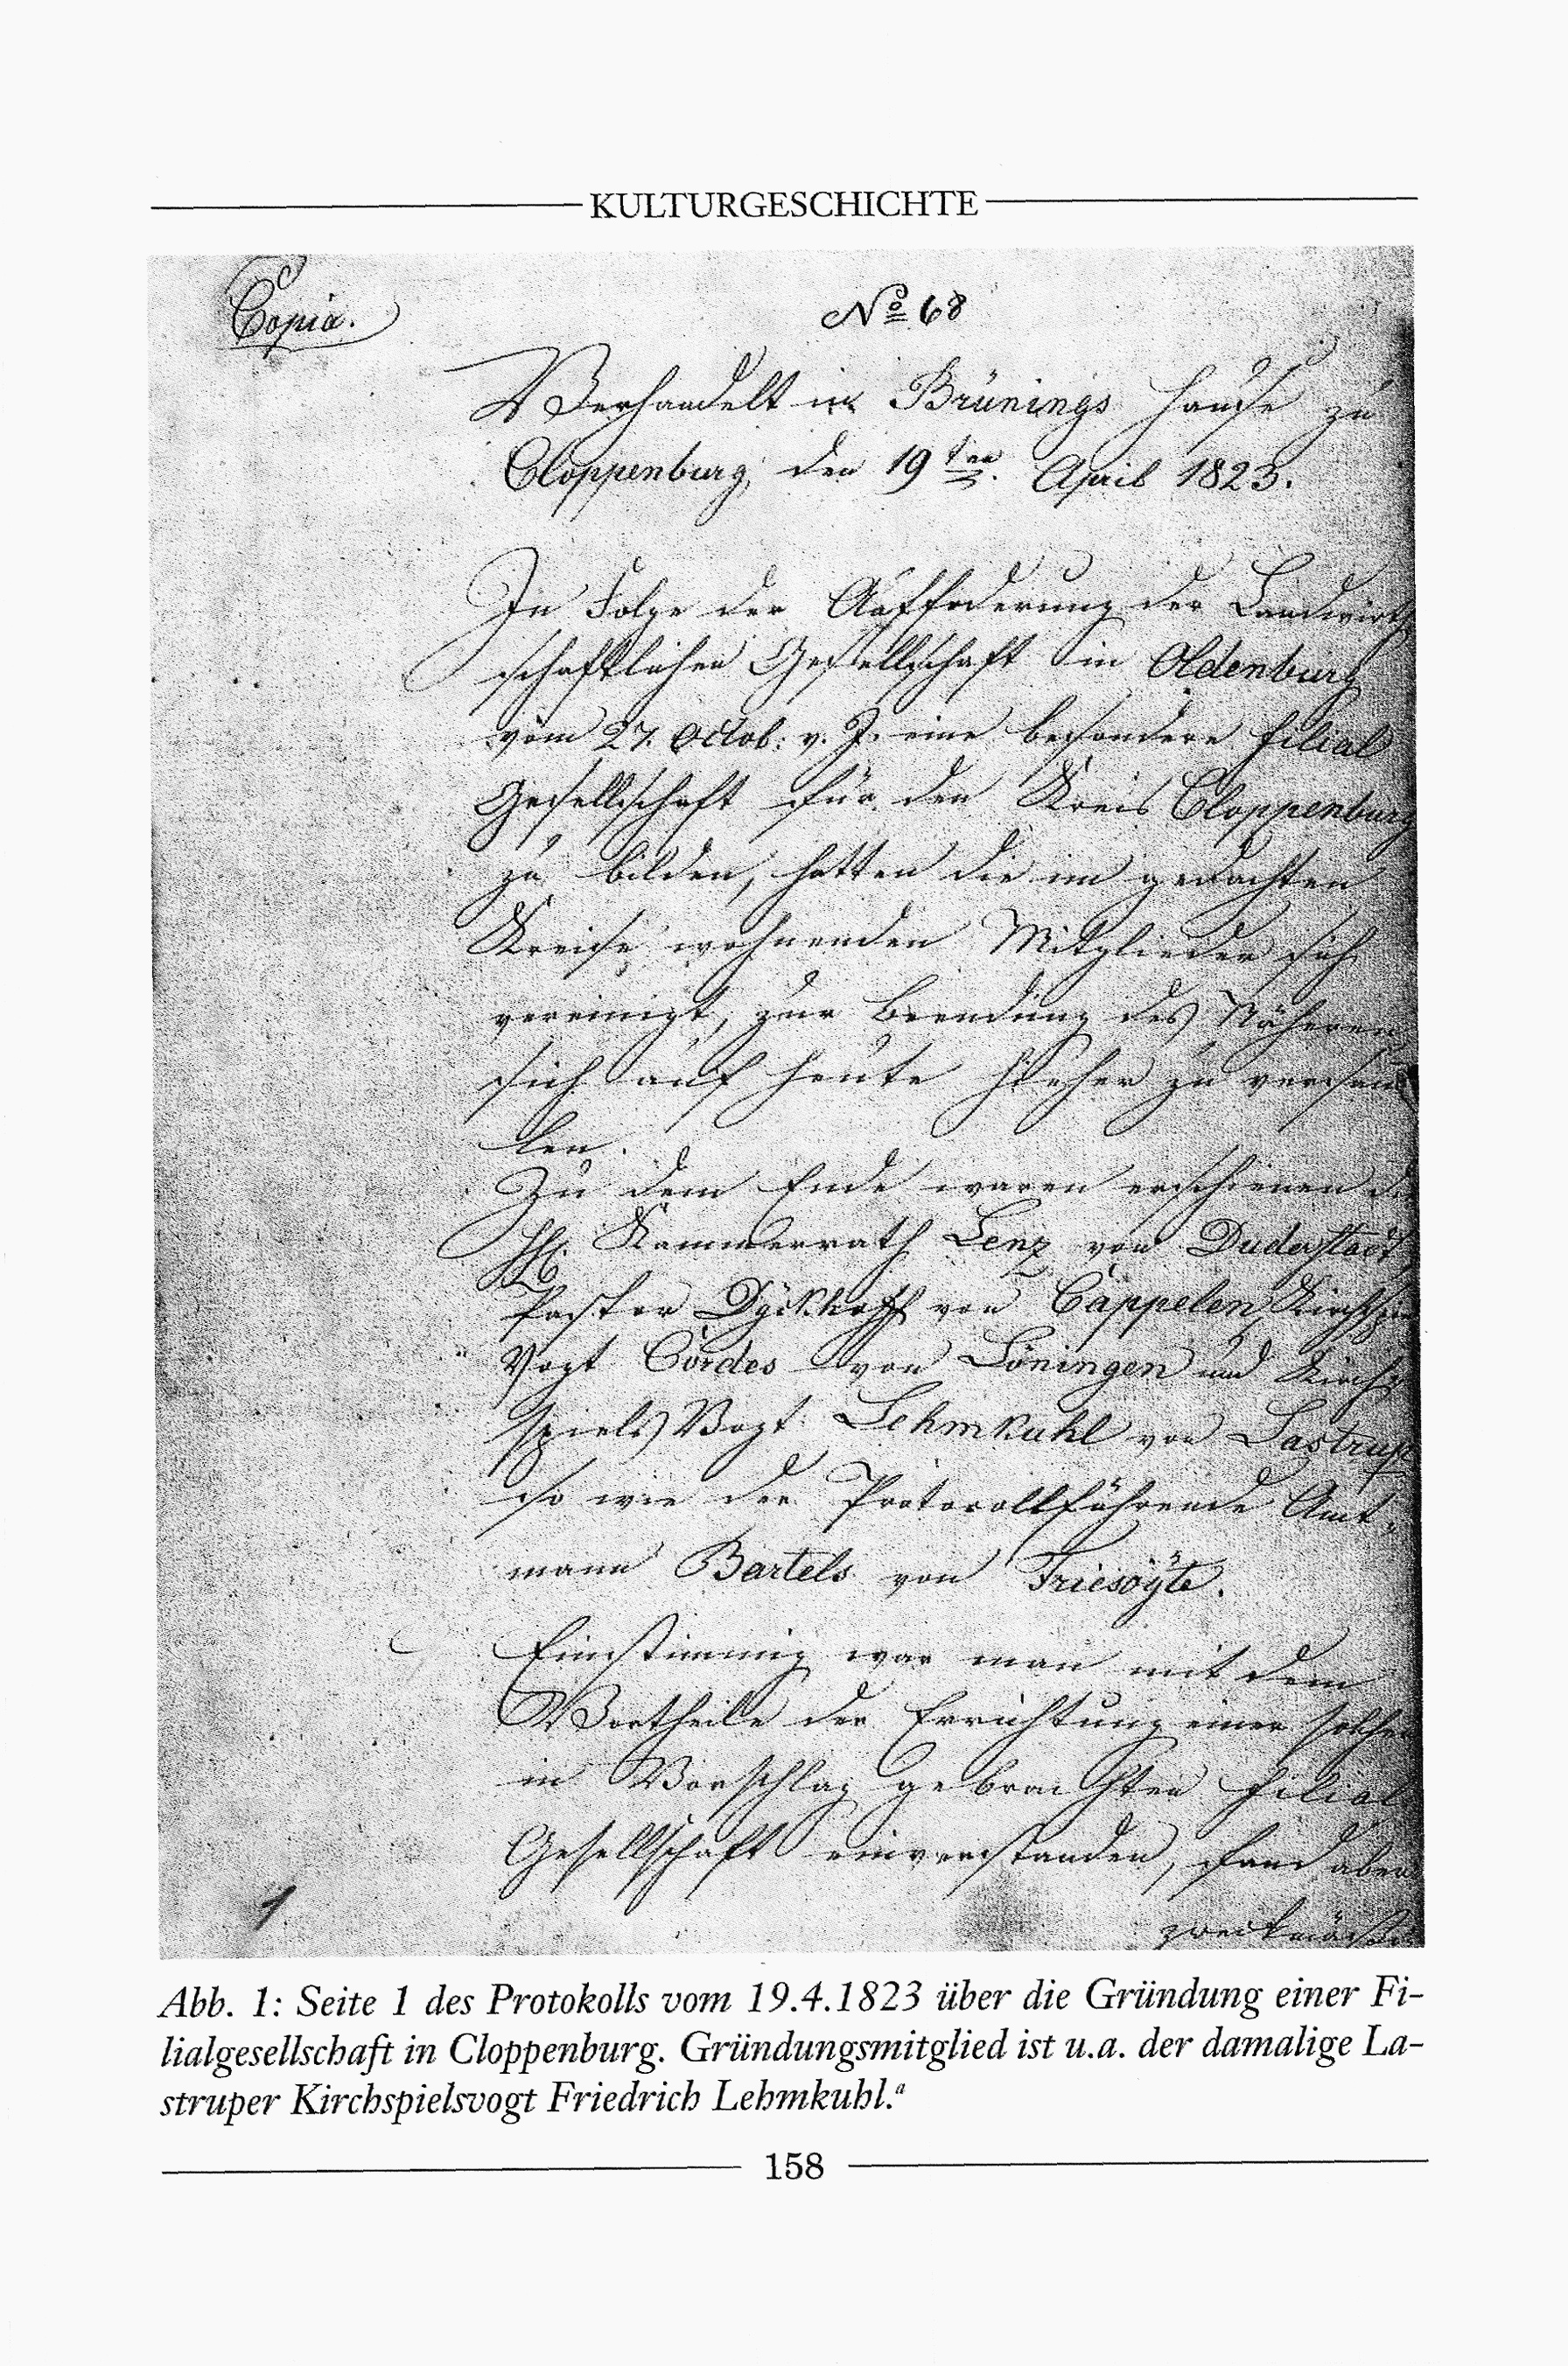 KULTURGESCHICHTE
Copia.
No 68
Verhandelt in Brünings Hause zu
Cloppenburg, den 19ten April 1823.
In Folge der Aufforderung der Landwirth
schaftlichen Gesellschaft in Oldenburg
vom 27. Octob: v. J. eine besondere Filial
Gesellschaft für den Kreis Cloppenburg
zu bilden, hatten die im gedachten
Kreise wohnenden Mitglieder sich
vereinigt, zur Beendung des Näheren
sich auf heute hieher zu versam
len.
Zu dem Ende waren erschienen
HH. Kammerrath Lenz von Duderstadt,
Pastor Dyckhoff von Cappelen, Kirchspiel
Vogt Cordes von Löningen und Kirch
spiels Vogt Lehmkuhl von Lastrup
so wie der Protocollführende Amt-
mann Bartels von Friesöyte.
Einstimmig war man mit dem
Vortheile der Errichtung einer solchen
in Vorschlag gebrachten Filial
Gesellschaft einverstanden, fand aber
1
Abb. 1: Seite 1 des Protokolls vom 19.4.1823 über die Gründung einer Fi-
lialgesellschaft in Cloppenburg. Gründungsmitglied ist u.a. der damalige La-
struper Kirchspielsvogt Friedrich Lehmkuhl.a
158